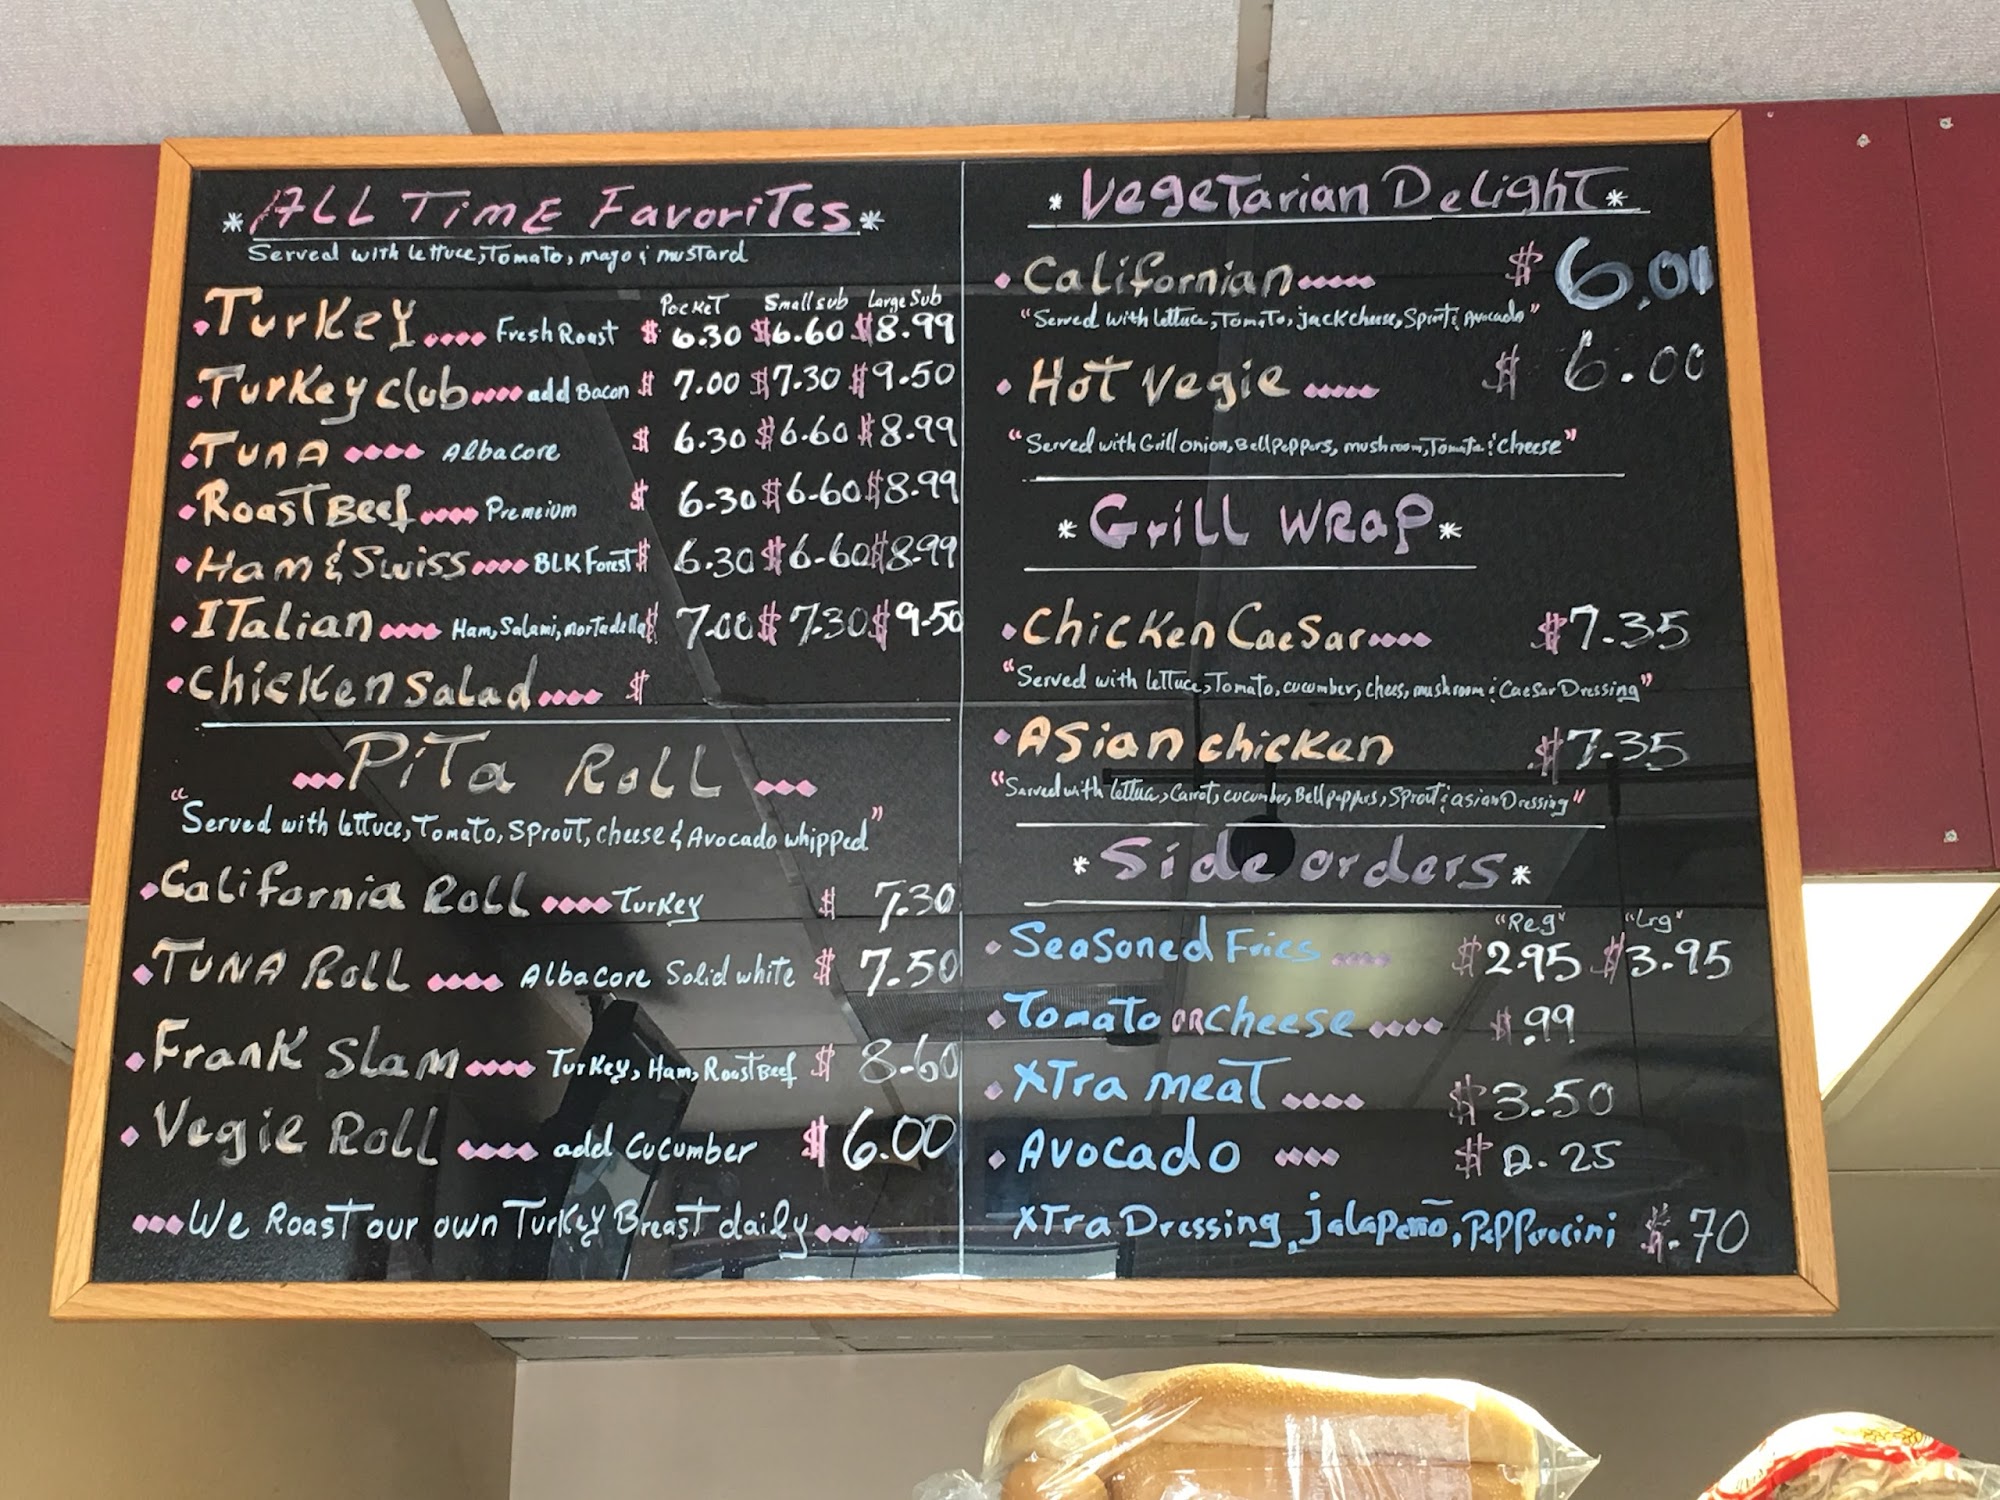 * All Time Favorites *
Served with lettuce, Tomato, mayo & mustard
Pocket Small sub Large Sub
Turkey Fresh Roast $ 6.30 $6.60 $8.99
Turkey club add Bacon $ 7.00 $7.30 $9.50
Tuna Albacore $ 6.30 $6.60 $8.99
Roast Beef Premeium $ 6.30 $6.60 $8.99
Ham & Swiss BLK Forest $ 6.30 $6.60 $8.99
Italian Ham, Salami, mortadella $ 7.00 $7.30 $9.50
Chicken Salad $
Pita Roll
"Served with lettuce, Tomato, Sprout, cheese & Avocado whipped"
California Roll Turkey $ 7.30
Tuna Roll Albacore Solid white $ 7.50
Frank Slam Turkey, Ham, Roast Beef $ 8.60
Vegie Roll add Cucumber $ 6.00
We Roast our own Turkey Breast daily
* Vegetarian Delight *
Californian $ 6.00
"Served with lettuce, Tomato, jack cheese, Sprout & Avocado"
Hot Vegie $ 6.00
"Served with Grill onion, Bell Peppers, mushroom, Tomato & Cheese"
* Grill Wrap *
Chicken Caesar $7.35
"Served with lettuce, Tomato, cucumber, chees, mushroom & Caesar Dressing"
Asian chicken $7.35
"Served with lettuce, Carrot, cucumber, Bell peppers, Sprout & asian Dressing"
* Side orders *
"Reg" "Lrg"
Seasoned Fries $2.95 $3.95
Tomato OR Cheese $.99
Xtra meat $3.50
Avocado $2.25
Xtra Dressing, jalapeño, Pepperocini $.70